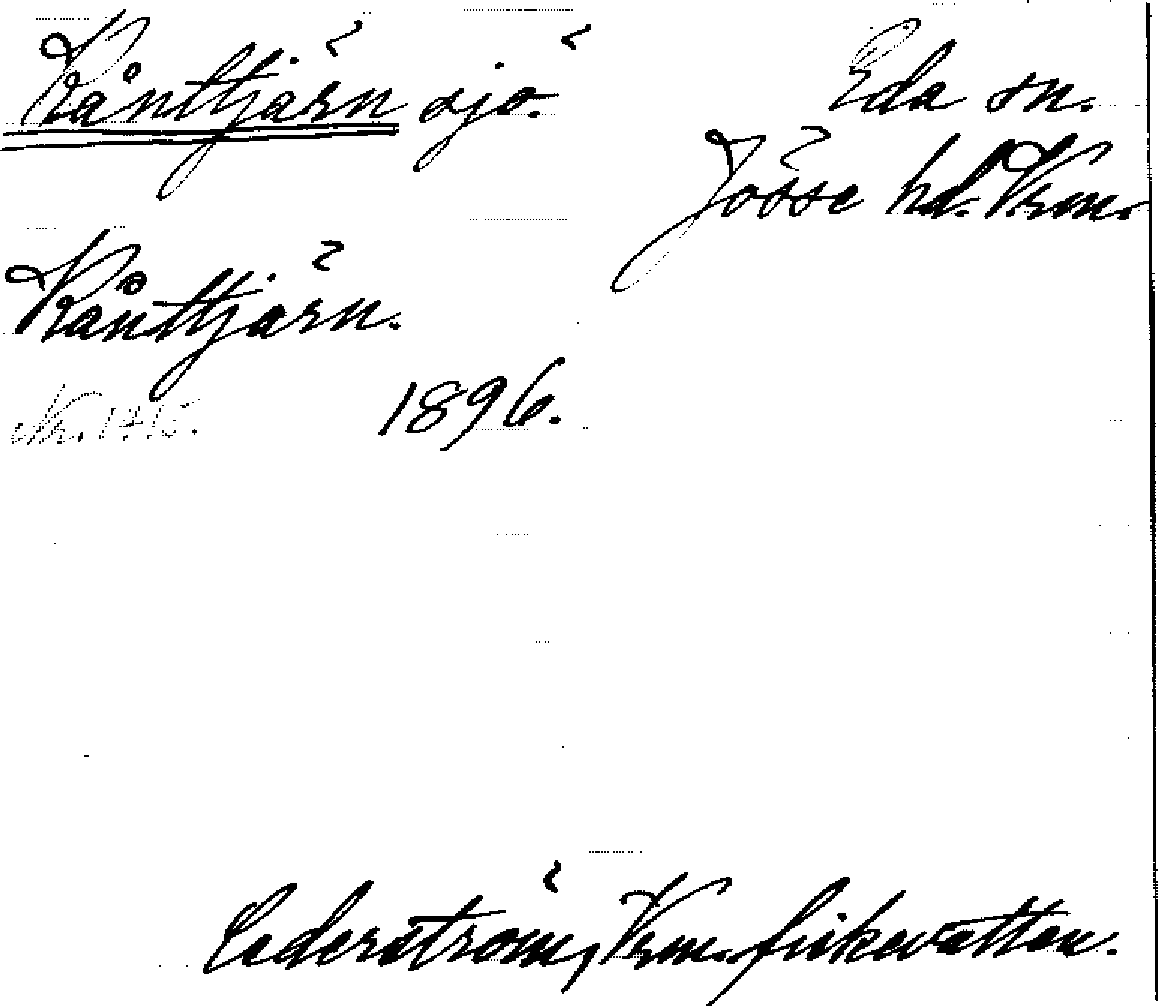 Rånttjärn sjö.
Eda sn.
Jösse hd. Vrm.
Rånttjärn.
1896.
Cederström, Vrm. fiskevatten.